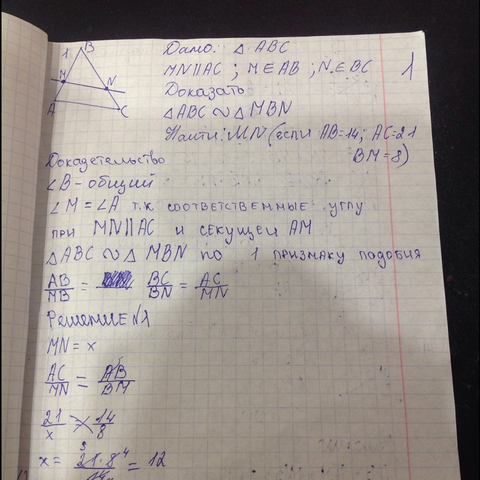 1 B
M N
A C
Дано: △ ABC
MN||AC ; M∈AB ; N∈BC
1
Доказать
△ABC ∾ △MBN
Найти: MN (если AB=14; AC=21
BM=8)
Доказательство
∠B - общий
∠M = ∠A т.к соответственные углу
при MN||AC и секущей AM
△ABC ∾ △MBN по 1 признаку подобия
AB/MB = BC/BN = AC/MN
Решение №1
MN = x
AC/MN = AB/BM
21/x = 14/8
x = 21·8/14 = 12